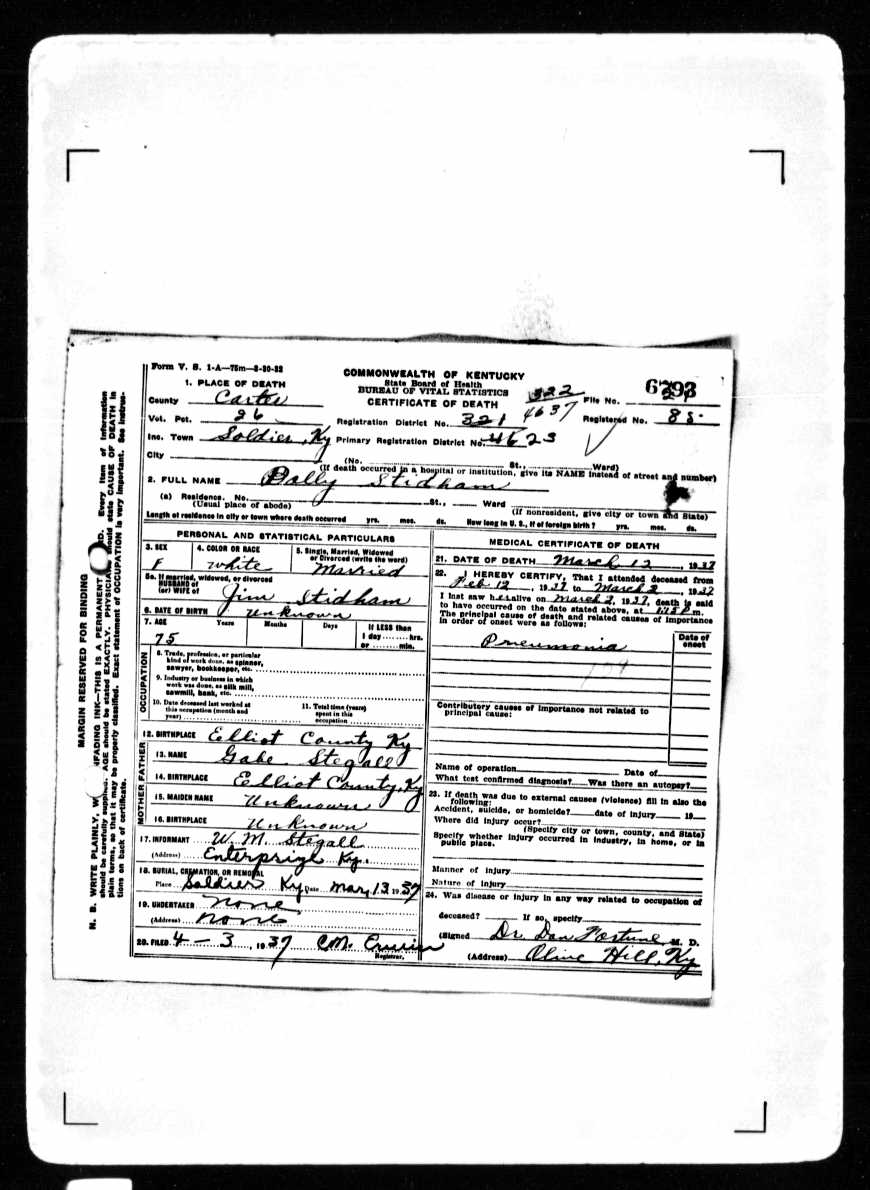 Form V. S. 1-A—75m—8-30-32
1. PLACE OF DEATH
County Carter
Vot. Pct. 26
Inc. Town Soldier, Ky
City
COMMONWEALTH OF KENTUCKY
State Board of Health
BUREAU OF VITAL STATISTICS
CERTIFICATE OF DEATH
322
4637
File No.
Registered No. 85
Registration District No. 321
Primary Registration District No. 4623
(No. St., Ward)
(If death occurred in a hospital or institution, give its NAME instead of street and number)
2. FULL NAME Dally Stidham
(a) Residence. No. St., Ward
(Usual place of abode) (If nonresident, give city or town and State)
Length of residence in city or town where death occurred yrs. mos. ds. How long in U. S., if of foreign birth? yrs. mos. ds.
PERSONAL AND STATISTICAL PARTICULARS
3. SEX 4. COLOR OR RACE 5. Single, Married, Widowed or Divorced (write the word)
F white Married
5a. If married, widowed, or divorced
HUSBAND of
(or) WIFE of Jim Stidham
6. DATE OF BIRTH unknown
7. AGE Years Months Days If LESS than
1 day hrs.
or min.
75
OCCUPATION
8. Trade, profession, or particular
kind of work done, as spinner,
sawyer, bookkeeper, etc.
9. Industry or business in which
work was done, as silk mill,
sawmill, bank, etc.
10. Date deceased last worked at
this occupation (month and
year)
11. Total time (years)
spent in this
occupation
12. BIRTHPLACE Elliot County Ky
FATHER
13. NAME Gabe Stegall
14. BIRTHPLACE Elliot County, Ky
MOTHER
15. MAIDEN NAME Unknown
16. BIRTHPLACE Unknown
17. INFORMANT W. M. Stegall
(Address) Enterprize Ky.
18. BURIAL, CREMATION, OR REMOVAL
Place Soldier Ky Date Mar, 13 1937
19. UNDERTAKER none
(Address) none
20. FILED 4-3, 1937 C.M.
Registrar.
MEDICAL CERTIFICATE OF DEATH
21. DATE OF DEATH March 12, 1937
22. I HEREBY CERTIFY, That I attended deceased from
Feb 12, 1937 to March 2, 1937
I last saw her alive on March 2, 1937, death is said
to have occurred on the date stated above, at m.
The principal cause of death and related causes of importance
in order of onset were as follows:
Date of
onset
Pneumonia
Contributory causes of importance not related to
principal cause:
Name of operation Date of
What test confirmed diagnosis? Was there an autopsy?
23. If death was due to external causes (violence) fill in also the
following:
Accident, suicide, or homicide? date of injury 19
Where did injury occur?
(Specify city or town, county, and State)
Specify whether injury occurred in industry, in home, or in
public place.
Manner of injury
Nature of injury
24. Was disease or injury in any way related to occupation of
deceased? If so, specify
(Signed Dr. Dan Fortune M. D.
(Address) Olive Hill, Ky
MARGIN RESERVED FOR BINDING
N. B. WRITE PLAINLY, UNFADING INK—THIS IS A PERMANENT RECORD. Every item of information
should be carefully supplied. AGE should be stated EXACTLY. PHYSICIANS should state CAUSE OF DEATH in
plain terms, so that it may be properly classified. Exact statement of OCCUPATION is very important. See instruc-
tions on back of certificate.